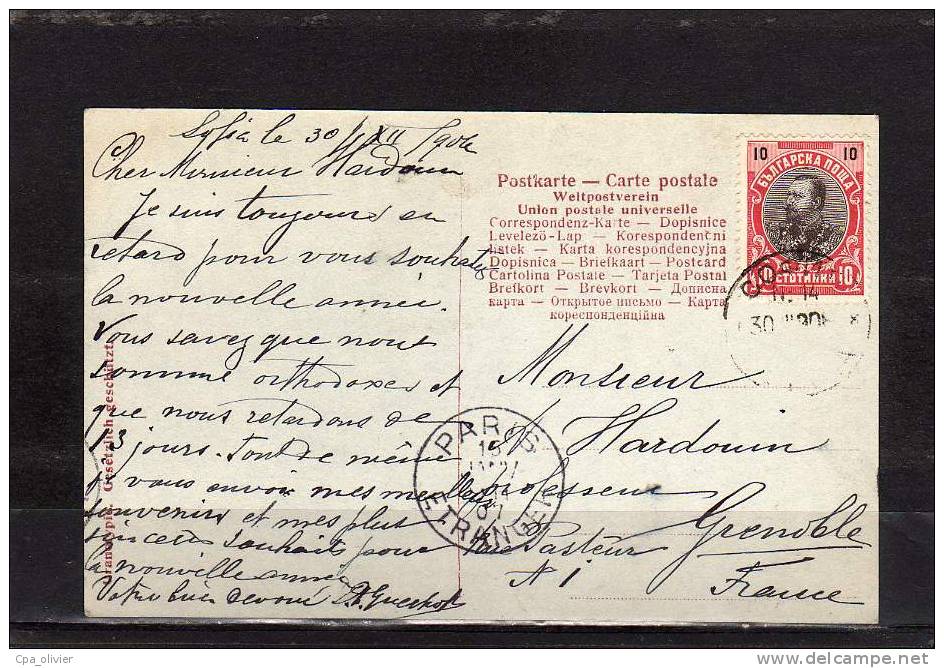 Sofia le 30/XII/906
Cher Monsieur Hardouin
Je suis toujours en
retard pour vous souhaiter
la nouvelle année.
Vous savez que nous
somme orthodoxes et
que nous retardons de
13 jours. Tout de même
je vous envoi mes meilleurs
souvenirs et mes plus
sinceres souhaits pour
la nouvelle année
Votre bien devoué
Gesetzlich geschützt.
Postkarte — Carte postale
Weltpostverein
Union postale universelle
Correspondenz-Karte — Dopisnice
Levelező-Lap — Korespondenčni
listek — Karta korespondencyjna
Dopisnica — Briefkaart — Postcard
Cartolina Postale — Tarjeta Postal
Brefkort — Brevkort — Дописна
карта — Открытое письмо — Карта
кореспонденційна
10 10
БЪЛГАРСКА ПОЩА
10 СТОТИНКИ 10
Monsieur
Hardouin
professeur
Rue Pasteur
N 1
Grenoble
France
PARIS
ETRANGER
Cpa_olivier
www.delcampe.net